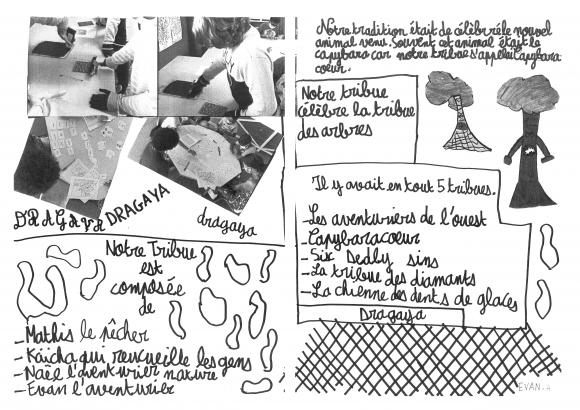 DRAGAYA DRAGAYA
dragaya
Notre Tribue
est
composée
de
_Mathis le pêcher
_Kaïcha qui reucueille les gens
_Naël l'aventurier nature
_Evan l'aventurier
Notre tradition était de célébré le nouvel
animal venu. Souvent cet animal était le
capybara car notre tribue s'appelleit capybara
coeur.
Notre tribue
célèbre la tribue
des arbres
Il y avait en tout 5 tribues.
_Les aventuriers de l'ouest
_Capybaracoeur
_Six Dedly sins
_La tribue des diamants
_La chienne des dents de glaces
Dragaya
EVAN.A